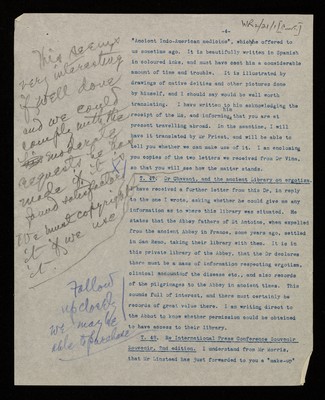 WA/HMM
-4-
"Ancient Indo-American medicine", which he offered to
us sometime ago. It is beautifully written in Spanish
in coloured inks, and must have cost him a considerable
amount of time and trouble. It is illustrated by
drawings of native deities and other pictures done
by himself, and I should say would be well worth
translating. I have written to him acknowledging the
receipt of the MS. and informing him that you are at
present travelling abroad. In the meantime, I will
have it translated by Dr Priest, and will be able to
tell you whether we can make use of it. I am enclosing
you copies of the two letters we received from Dr Vina,
so that you will see how the matter stands.
Dr Chavant, and the ancient library on ergotism.
I have received a further letter from this Dr, in reply
to the one I wrote, asking whether he could give me any
information as to where this library was situated. He
states that the Abbey Fathers of St Antoine, when expelled
from the ancient Abbey in France, some years ago, settled
in San Remo, taking their library with them. It is in
this private library of the Abbey, that the Dr declares
there must be a mass of information respecting ergotism,
clinical accounts of the disease etc., and also records
of the pilgrimages to the Abbey in ancient times. This
sounds full of interest, and there must certainly be
records of great value there. I am writing direct to
the Abbot to know whether permission could be obtained
to have access to their library.
International Press Conference Souvenir
Souvenir, 2nd edition. I understand from Dr Morris,
that Mr Linstead has just forwarded to you a "make-up"
This seems
very interesting
if well done
and we could
comply with the
moderate
requests he has
made if it is
found satisfactory
We must copyright
it if we use
it
Follow
up closely
we may be
able to purchase